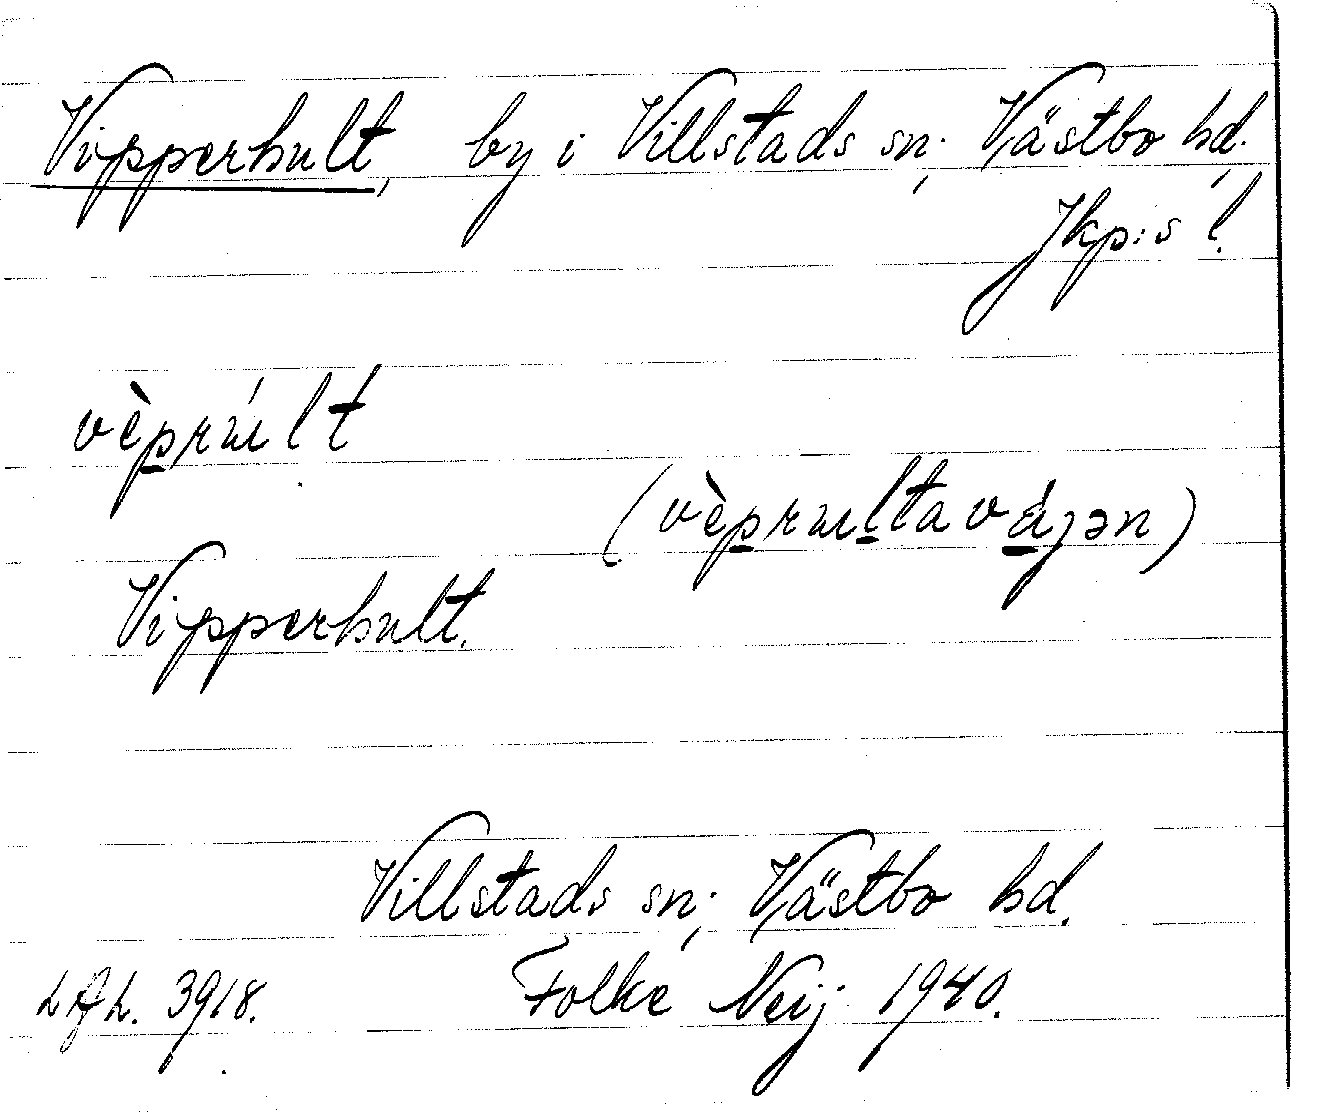 Vipperhult, by i Villstads sn; Västbo hd.,
Jkp:s l.
vèprúlt
(vèprultavájən)
Vipperhult.
Villstads sn; Västbo hd.
Folke Neij 1940.
3918.